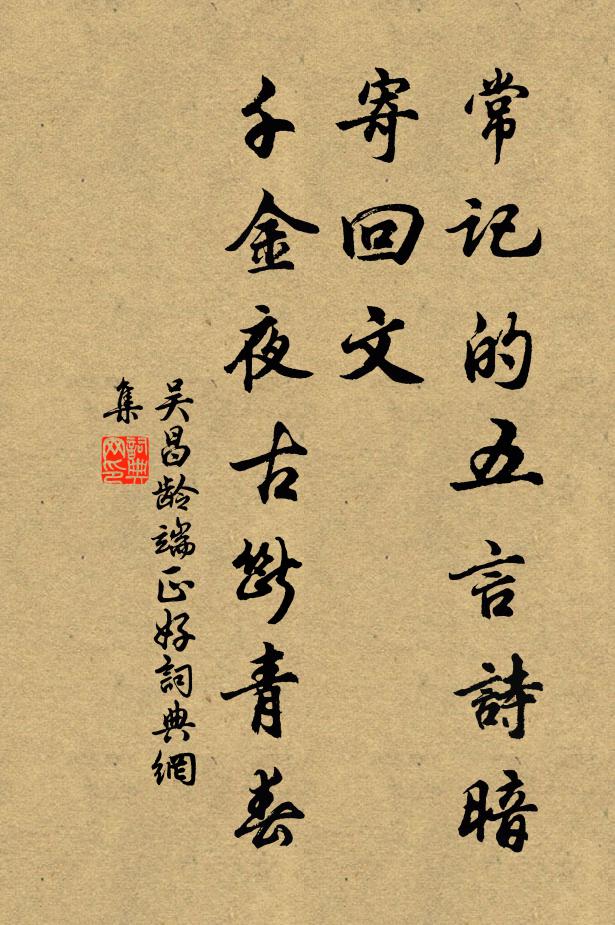 常记的五言詩暗
寄回文
千金夜古斷青春
吴昌龄端正好詞典網
集
詞典
网印